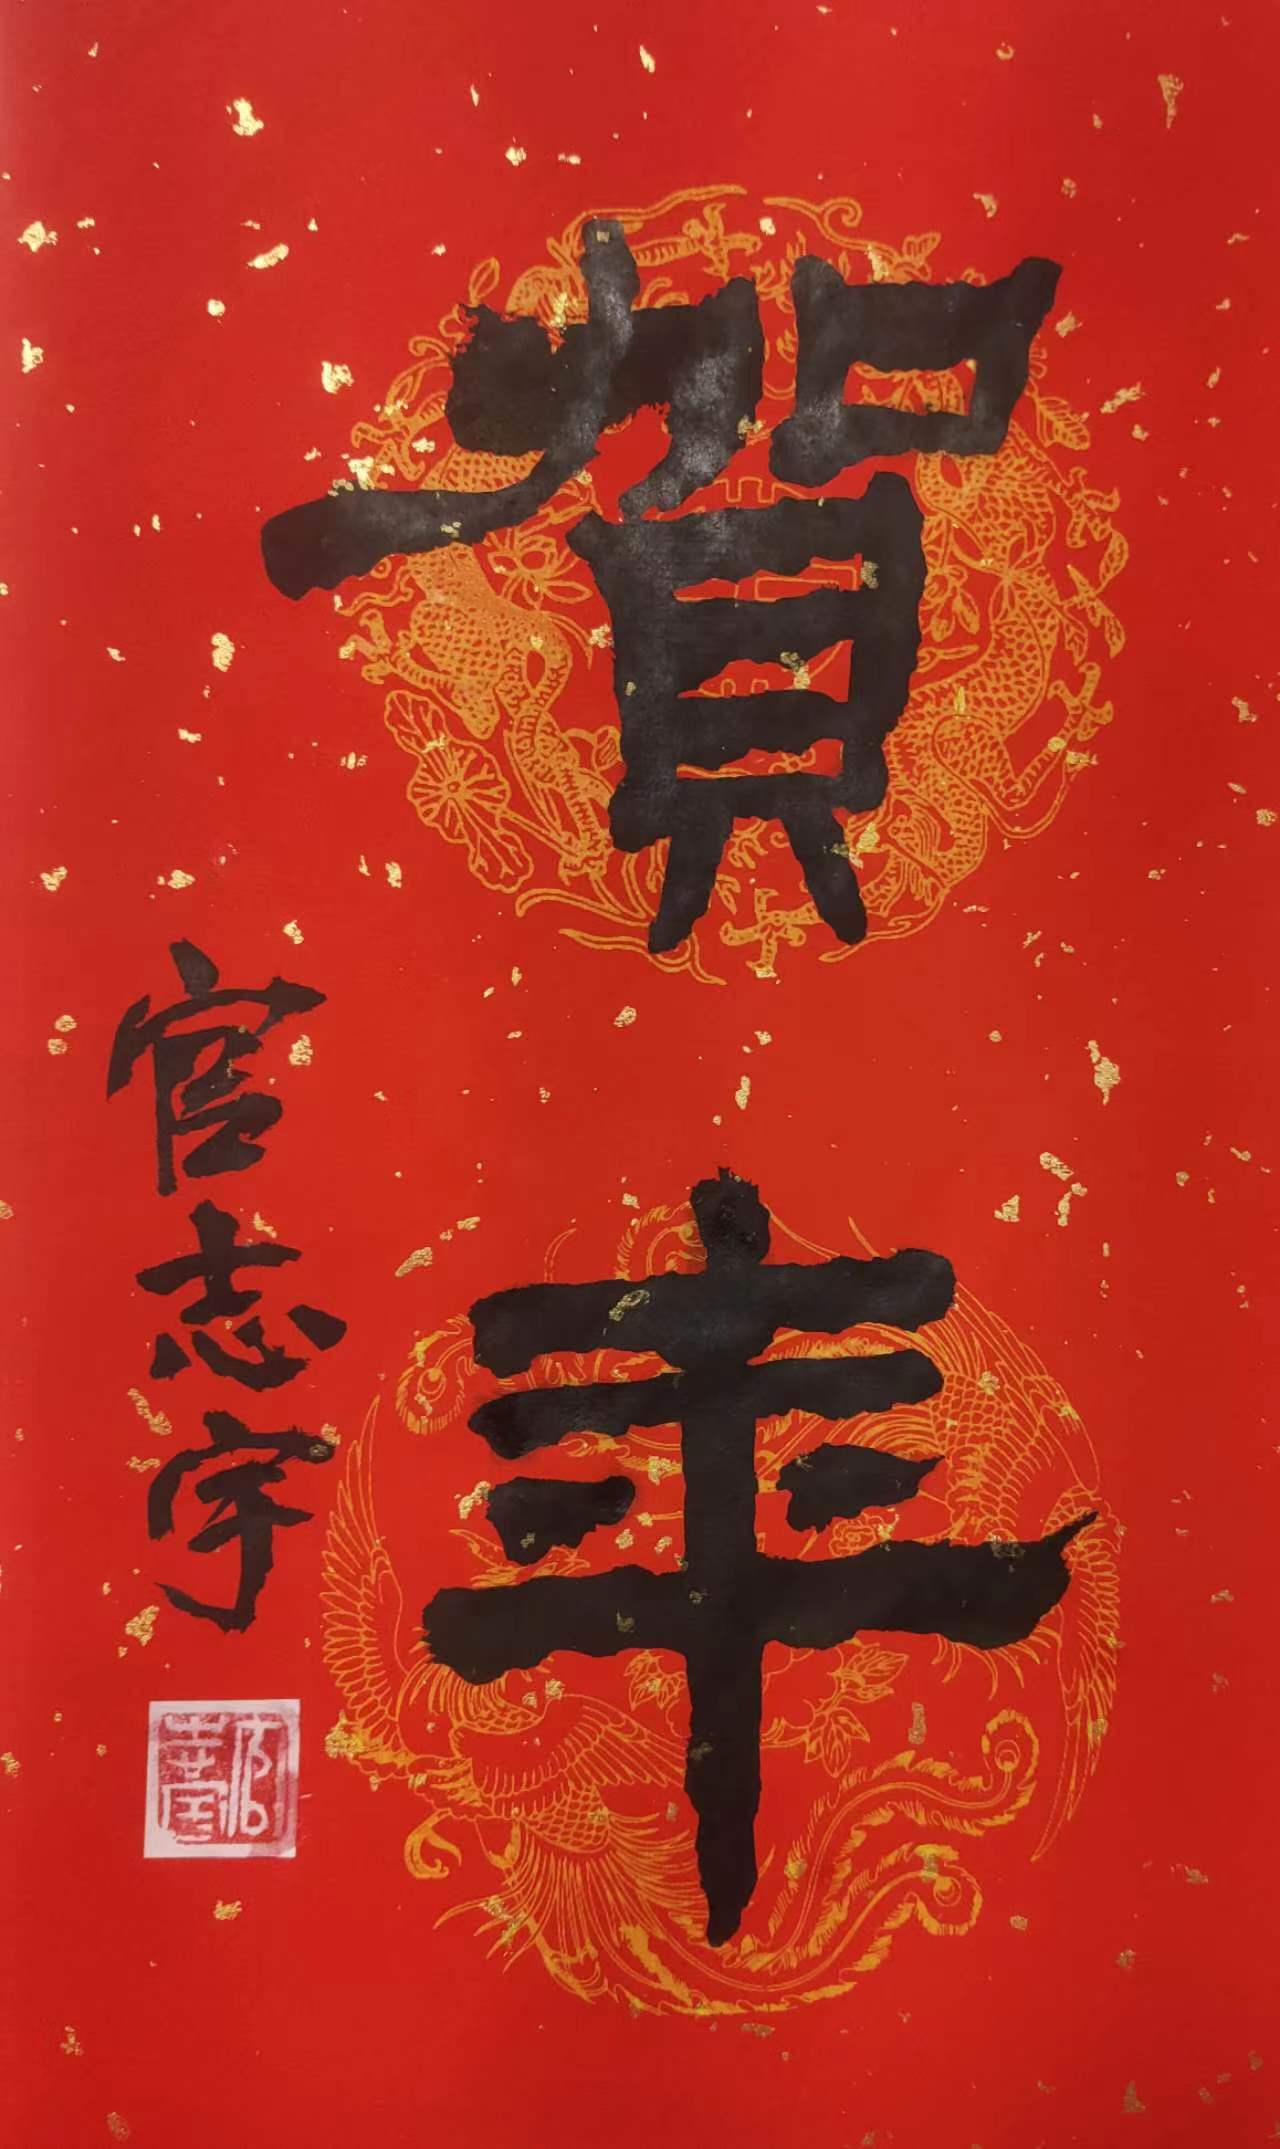 賀年
官志宇